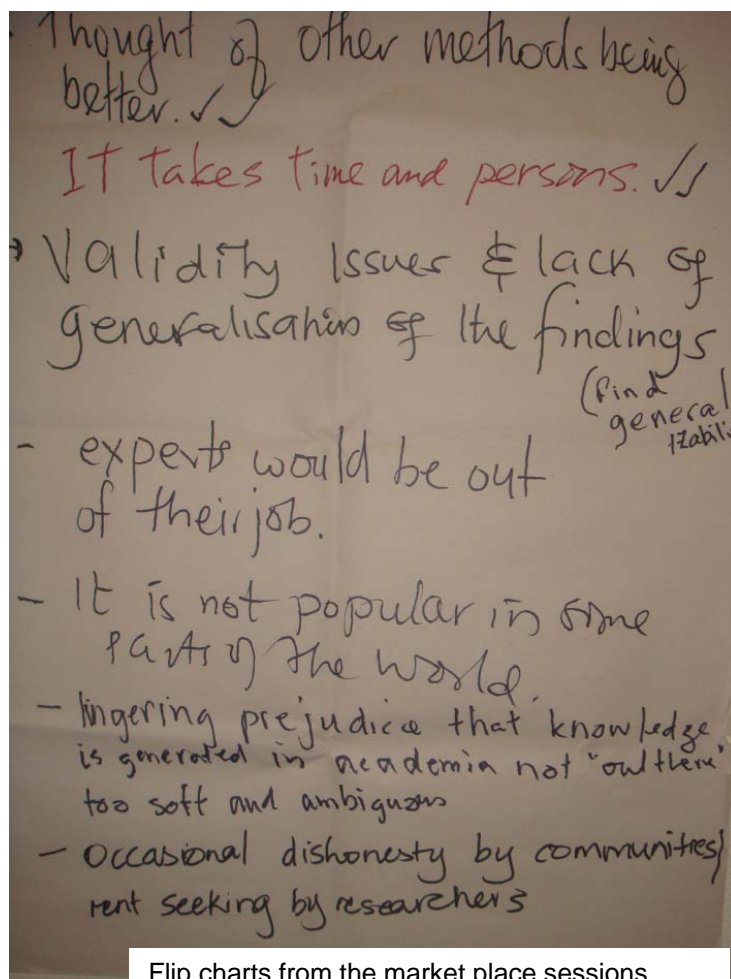 - Thought of other methods being
better. ✓✓
It takes time and persons. ✓✓
→ Validity issues & lack of
generalisation of the findings
(find
general
izabili
- experts would be out
of their job.
- It is not popular in some
parts of the world.
- lingering prejudice that knowledge
is generated in academia not "out there"
too soft and ambiguous
- Occasional dishonesty by communities/
rent seeking by researchers
Flip charts from the market place sessions